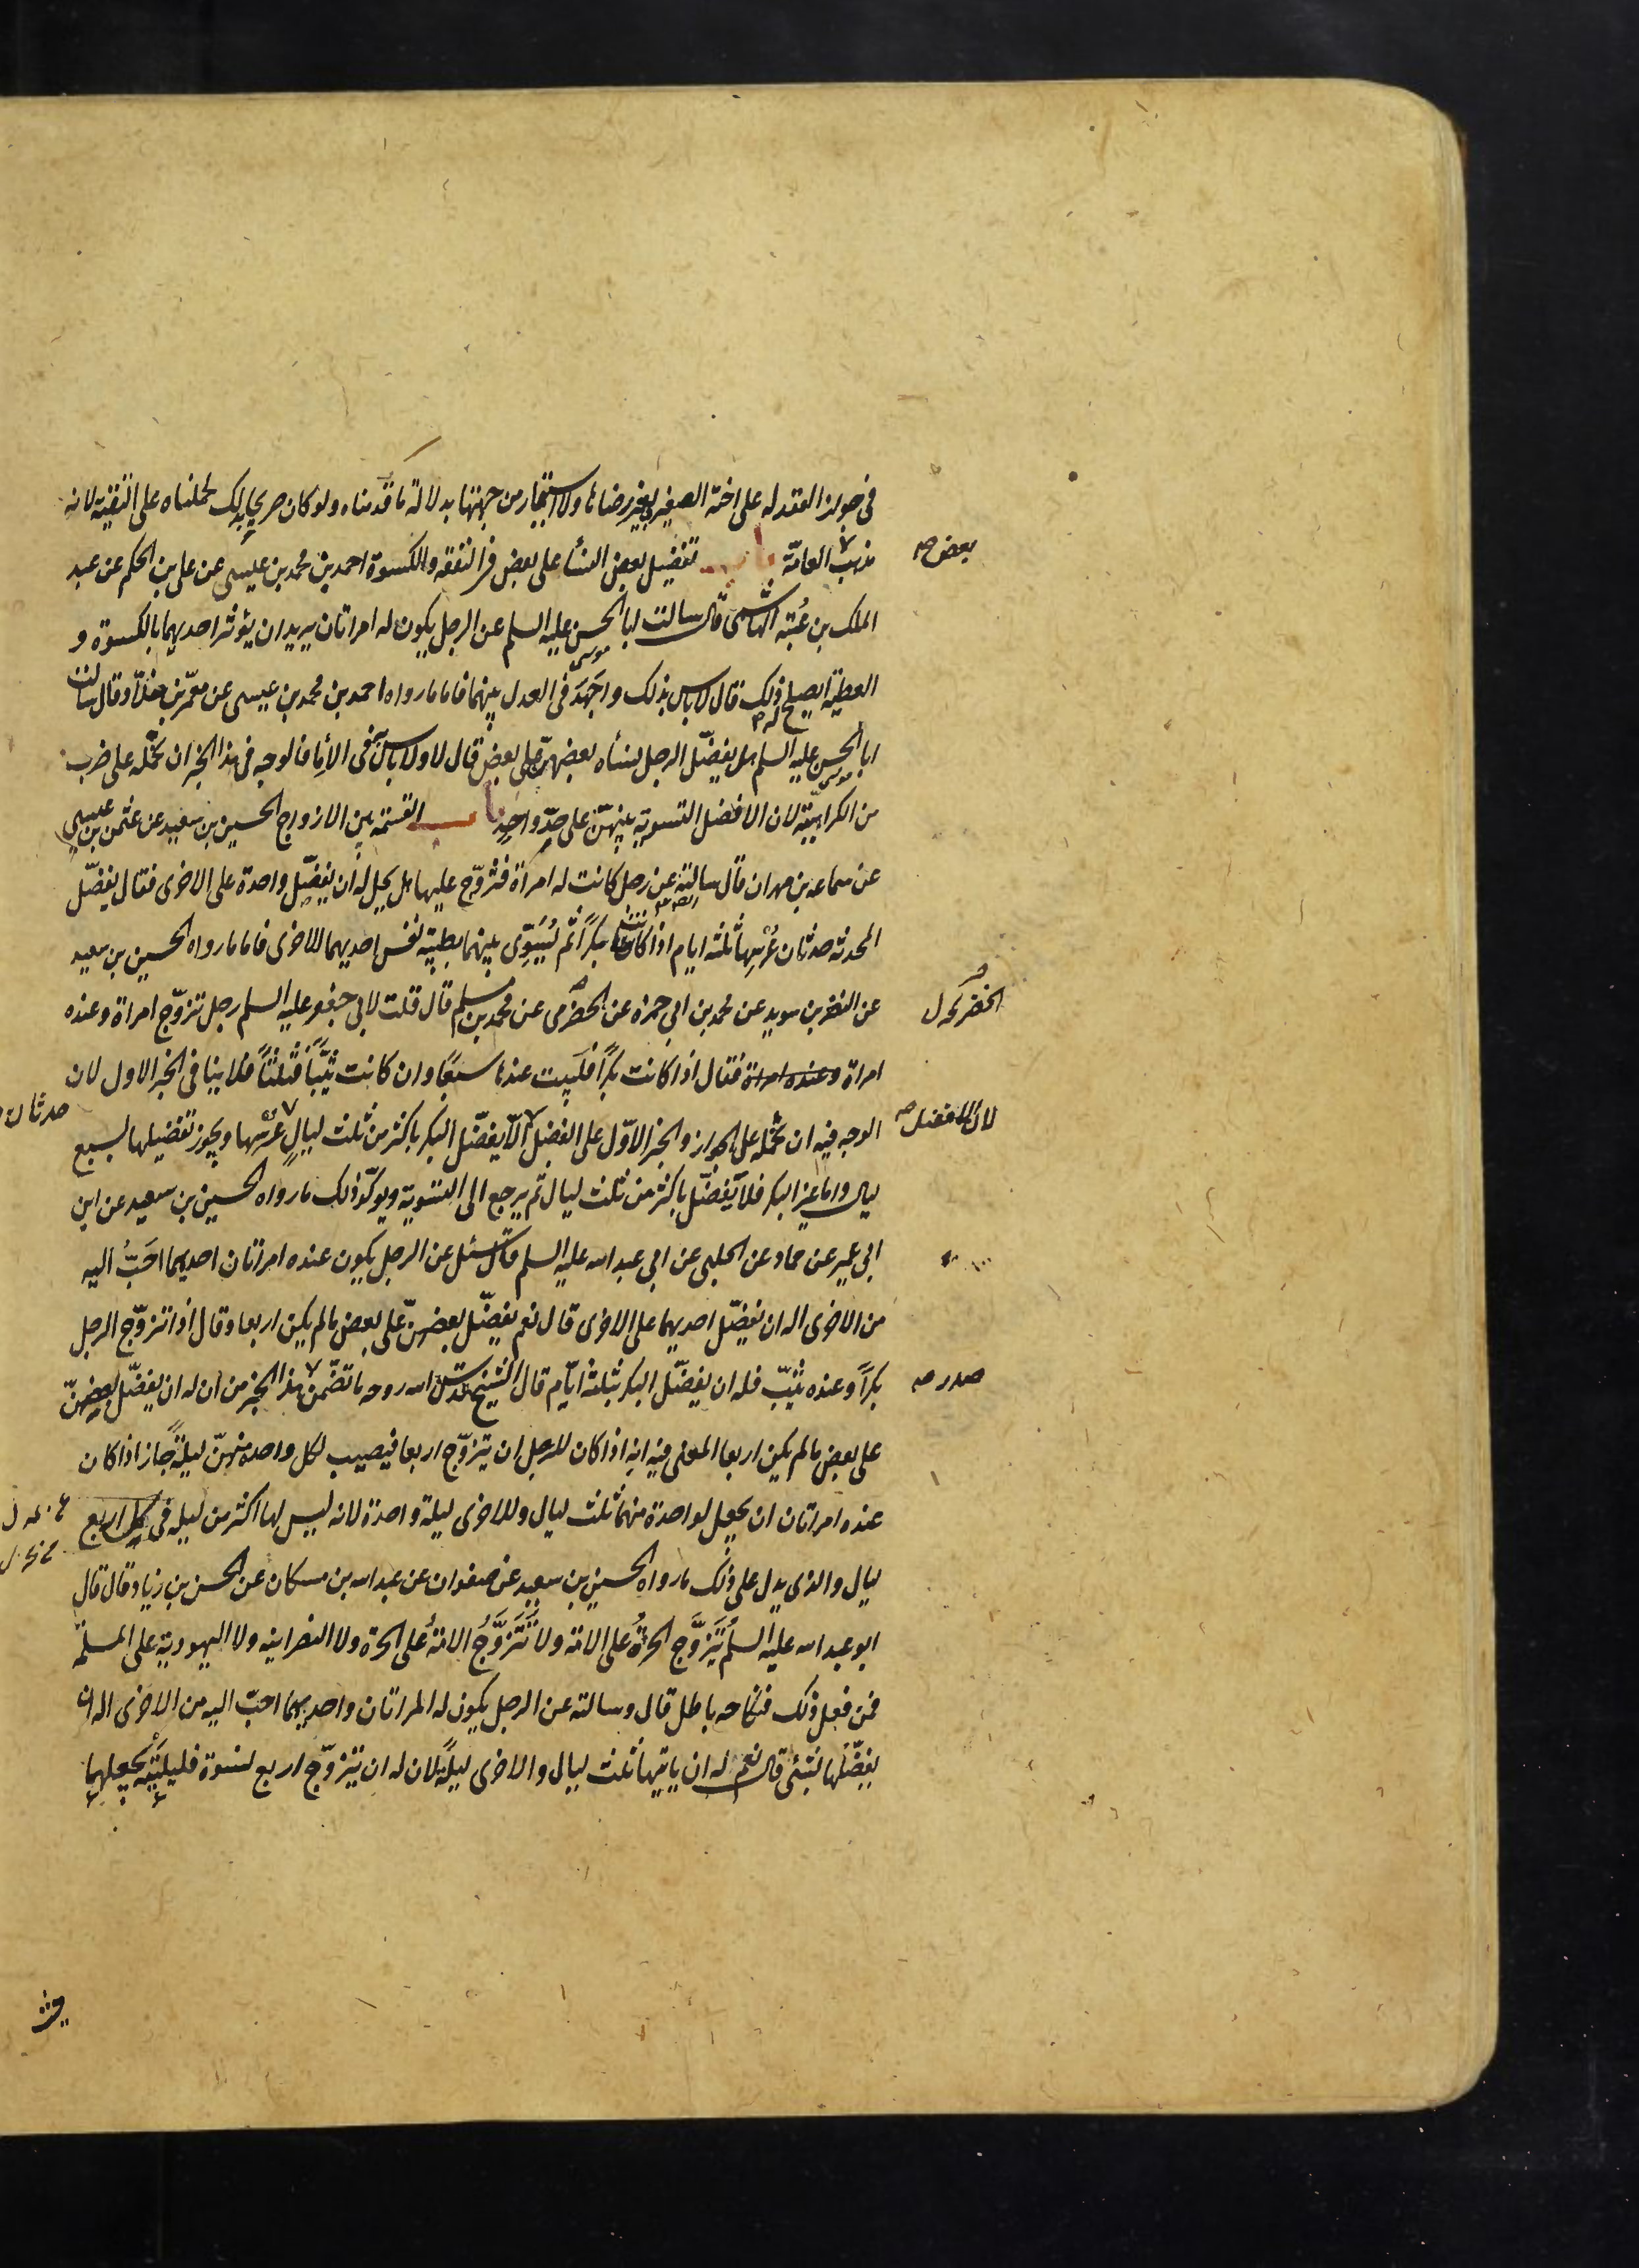 في جواز العقد له على اخته الصغيرة بغير رضاها ولا استيجار من جهتها بدلالة ما قدمناه ولو كان صريحا بذلك لحملناه على التقية لانه
بعض صح
مذهب العامّة باب تفضيل بعض النسأ على بعض في النفقه والكسوة احمد بن محمد بن عيسى عن علي بن الحكم عن عبد
الملك بن عُتبه الهاشمى قال سالت ابا الحسن موسى عليه السلم عن الرجل يكون له امراتان يريد ان يؤثر احديهما بالكسوة و
العطية ايصلح ذلك قال لا باس بذلك واجهَدَ فى العدل بينهما فاما ما رواه احمد بن محمد بن عيسى عن معمّر بن خلاّد قال سالت
ابا الحسن موسى عليه السلم هل يفضّل الرجل نسأه بعضهنّ على بعض قال لا ولا باس به فى الأِمأ فالوجه فى هذا الخبر ان نحمله على ضرب
من الكراهيّة لان الافضل التسوية بينهنّ على حدٍّ واحدٍ باب القسمة بين الازواج الحسين بن سعيد عن عثمن بن عيسى
عن سماعه بن مهران قال سالته عن رجل كانت له امرأة فتزوّج عليها هل يحل له ان يفضّل واحدة على الاخرى فقال يفضّل
المحدثه حدثان عُرْسِها ثلثه ايام اذا كانت بكراً ثم يُسَوِّى بينهما بطيبة نفس احديهما للاخرى فاما ما رواه الحسين بن سعيد
عن النضر بن سويد عن محمد بن ابي حمزه عن الحضرمى عن محمد بن مسلم قال قلت لابي جعفر عليه السلم رجل تزوّج امراة وعنده
امراة وعنده امراة فقال اذا كانت بكراً فليبت عندها سبعًا وان كانت ثيّباً فثلثاً فلا ينا فى الخبر الاول لان
حدثان
لان الافضل صح
الوجه فيه ان نحمله على الجواز والخبر الاوّل على الفضل الاّ يفضّل البكر باكثر من ثلث ليالٍ عرسها ويجوز تفضيلها لسبع
ليال واما غير البكر فلا يفضّل باكثر من ثلث ليال ثم يرجع الى التسوية ويوكّد ذلك ما رواه الحسين بن سعيد عن ابن
ابي عمير عن حماد عن الحلبى عن ابي عبد الله عليه السلم قال سئل عن الرجل يكون عنده امراتان احديهما احَبُّ اليه
من الاخرى اله ان يفضّل احديهما على الاخرى قال نعم يفضّل بعضهنّ على بعض ما لم يكن اربعا وقال اذا تزوّج الرجل
صدر صح
بكراً وعنده ثيّب فله ان يفضّل البكر بثلثة ايّام قال الشيخ قدّس الله روحه ما تضمّن هذا الخبر من ان له ان يفضّل بعضهنّ
على بعض ما لم يكن اربعا المعنى فيه انه اذا كان للرجل ان يتزوّج اربعا فيصيب لكل واحده منهنّ ليلةً جاز اذا كان
عنده امراتان ان يجعل لواحدة منهما ثلث ليال وللاخرى ليلة واحدة لانه ليس لها اكثر من ليله فى كل اربع
ليال والذى يدل على ذلك ما رواه الحسين بن سعيد عن صفوان عن عبد الله بن مسكان عن الحسن بن زياد قال قال
ابو عبد الله عليه السلم يُتَزَوَّج الحرةُ على الامة ولا تُتَزَوَّجُ الامةُ على الحرة ولا النصرانيه ولا اليهودية على المسلمه
فمن فعل ذلك فنكاحه باطل قال وسالته عن الرجل يكون له المراتان واحديهما احبّ اليه من الاخرى اله ان
يفضّلها بشئ قال نعم له ان ياتيها ثلث ليال والاخرى ليلةً لان له ان يتزوّج اربع نسوة فليلتيه يجعلهما